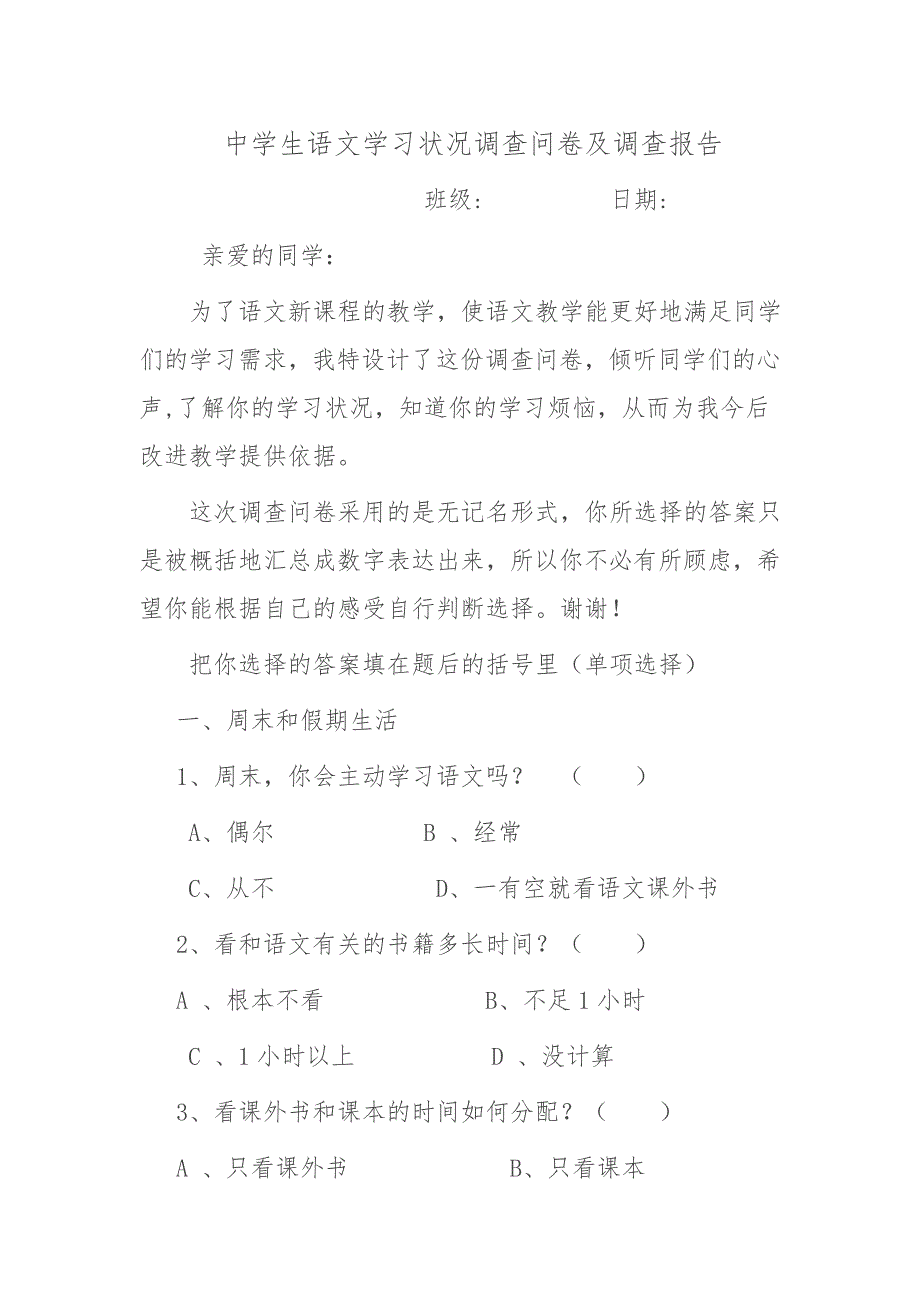 中学生语文学习状况调查问卷及调查报告
班级:          日期:
亲爱的同学：
为了语文新课程的教学，使语文教学能更好地满足同学
们的学习需求，我特设计了这份调查问卷，倾听同学们的心
声,了解你的学习状况，知道你的学习烦恼，从而为我今后
改进教学提供依据。
这次调查问卷采用的是无记名形式，你所选择的答案只
是被概括地汇总成数字表达出来，所以你不必有所顾虑，希
望你能根据自己的感受自行判断选择。谢谢！
把你选择的答案填在题后的括号里（单项选择）
一、周末和假期生活
1、周末，你会主动学习语文吗？  （    ）
A、偶尔            B 、经常
C、从不            D、一有空就看语文课外书
2、看和语文有关的书籍多长时间？（    ）
A 、根本不看            B、不足1小时
C 、1小时以上            D 、没计算
3、看课外书和课本的时间如何分配？（    ）
A 、只看课外书            B、只看课本